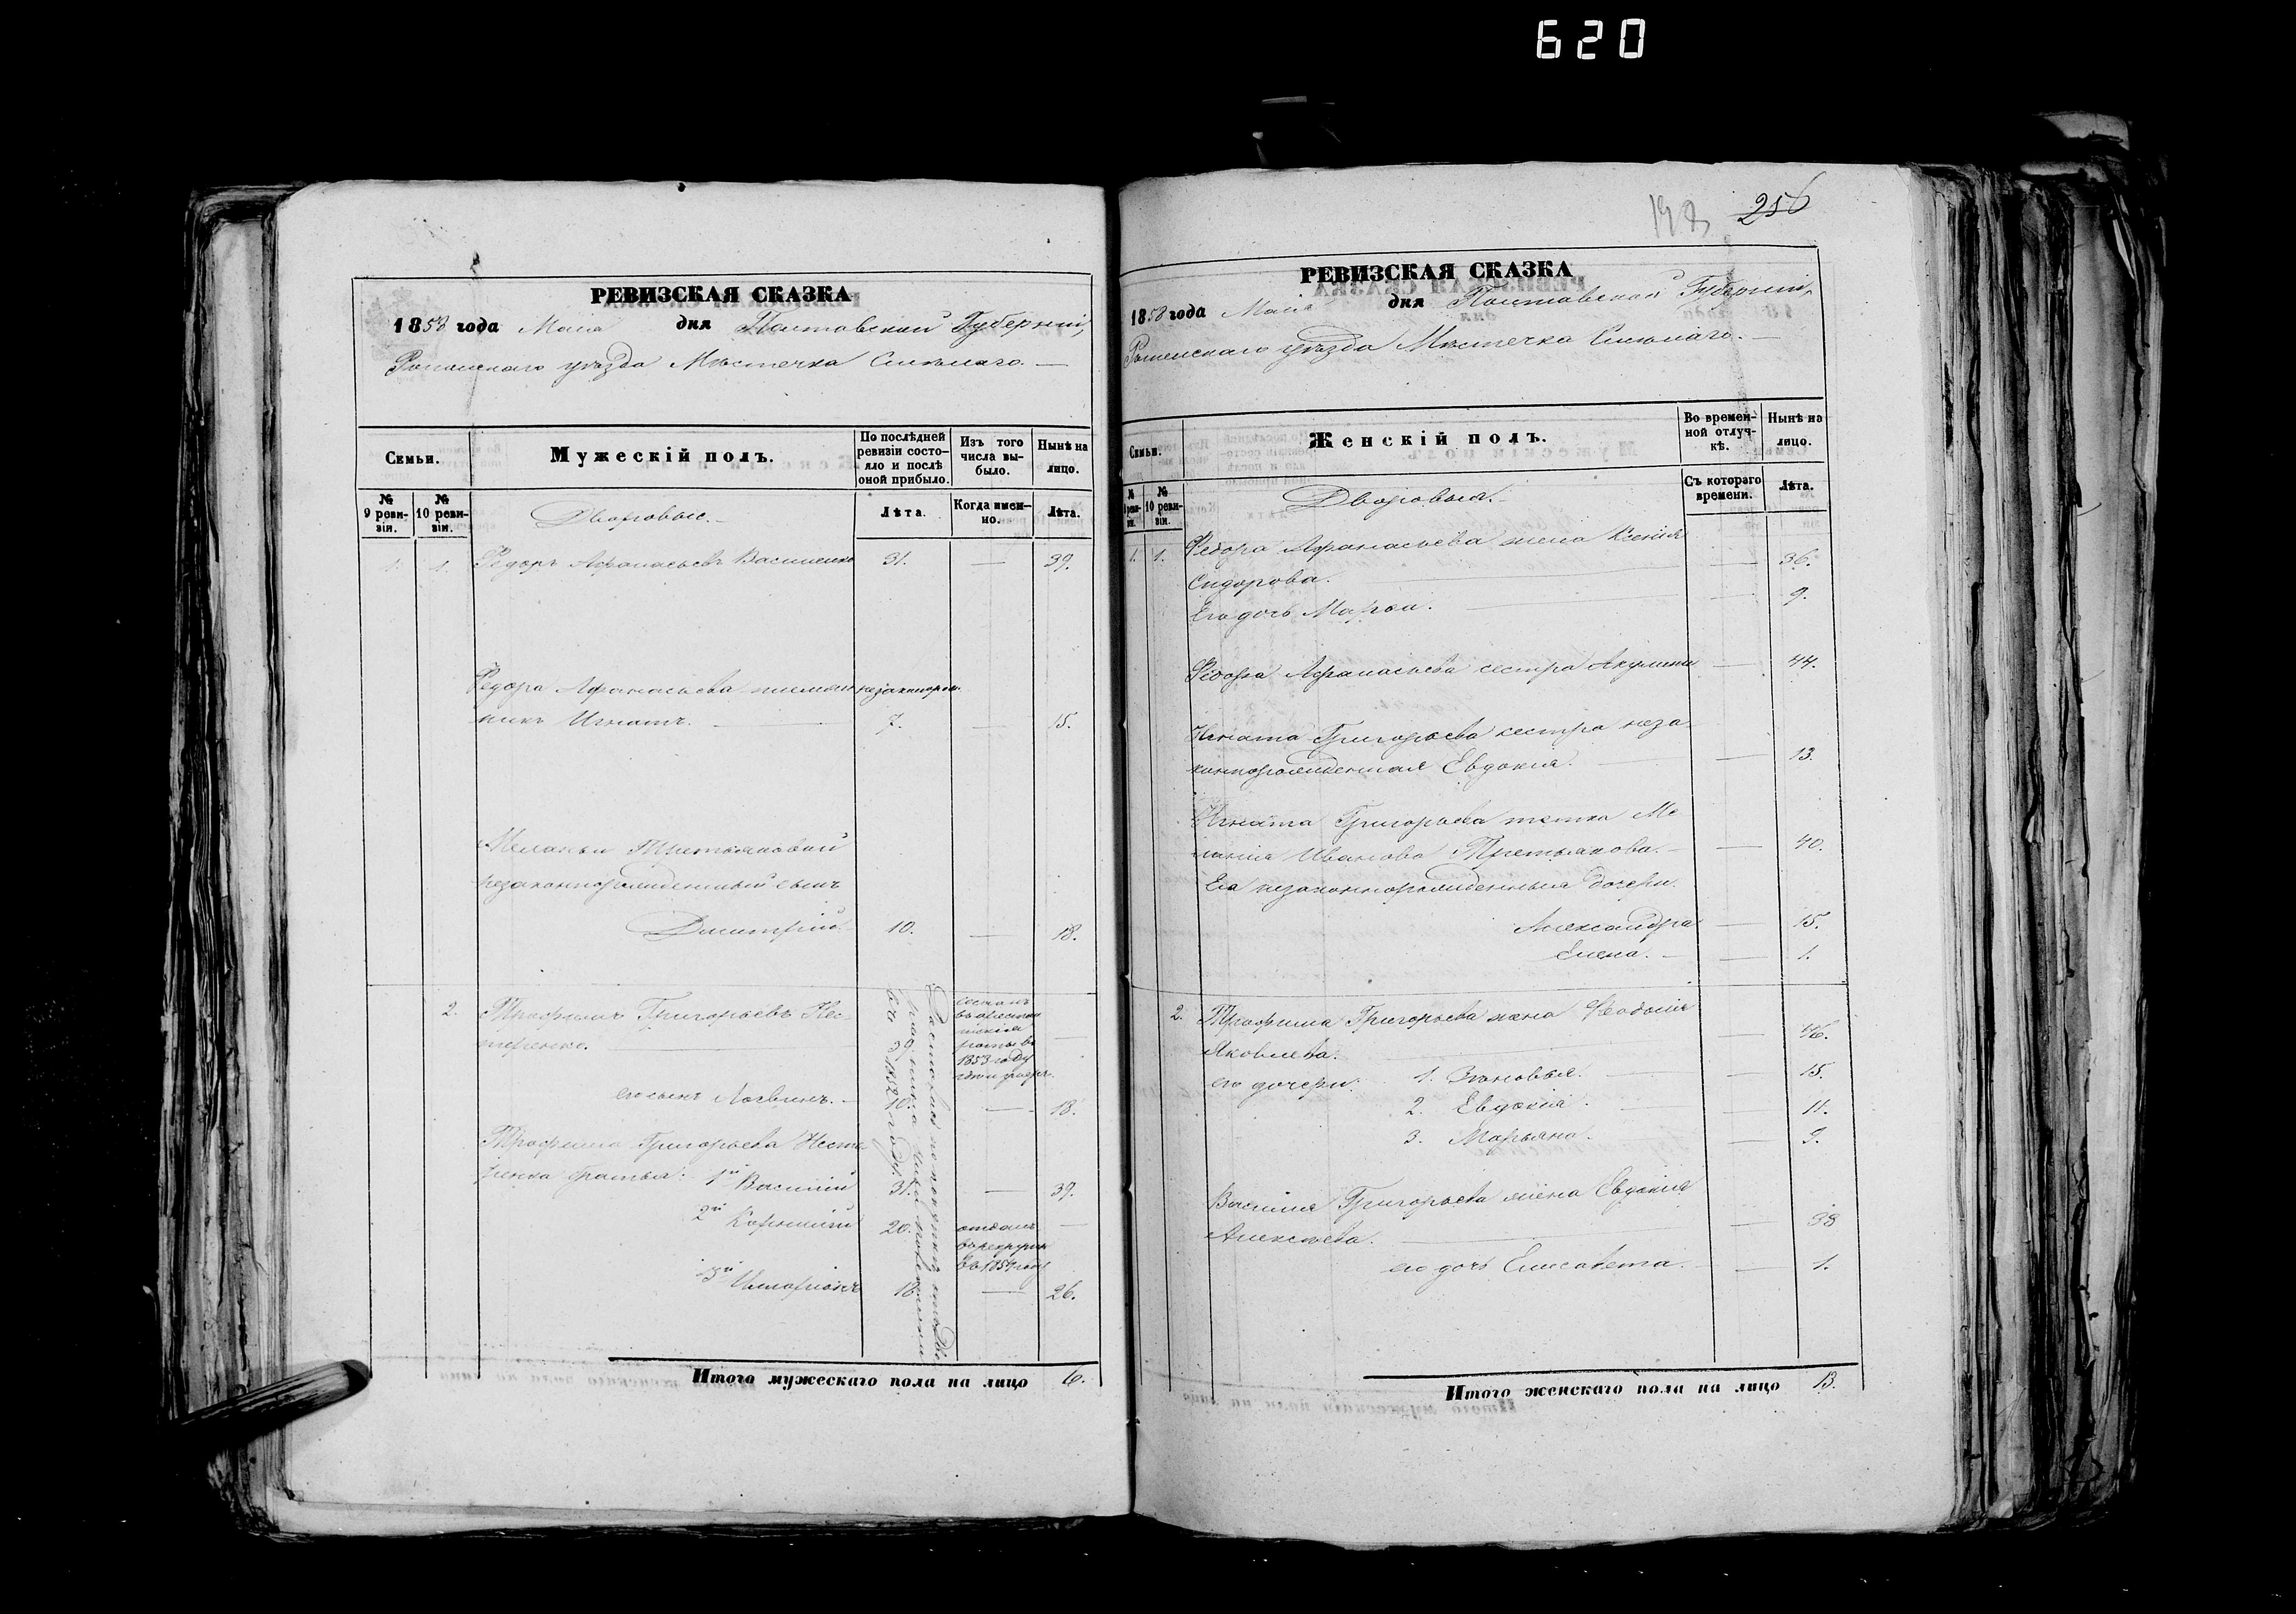 620
РЕВИЗСКАЯ СКАЗКА
1858 года Маія дня Полтавской Губерніи,
Роменскаго уѣзда Мѣстечка Смѣлаго.
Семьи.
Мужескій полъ.
По послѣдней ревизіи состояло и послѣ оной прибыло.
Изъ того числа выбыло.
Нынѣ на лицо.
№ 9 ревизіи.
№ 10 ревизіи.
Дворовые.
Лѣта.
Когда именно.
Лѣта.
1. 1. Федоръ Афанасьевъ Василенко 31. — 39.
Федора Афанасьева племян незаконорож.
никъ Игнатъ. — 7. — 15.
Меланьи Третьяковой
незаконнорожденный сынъ
Дмитрій. 10. — 18.
2. Трофимъ Григорьевъ Нес-
теренко. — 39 —
его сынъ Логвинъ. — 10. — 18.
Трофима Григорьева Несте
ренка братья: 1й Василій 31. — 39.
2й Корнилій 20. отданъ въ рекруты въ 1854 году —
3й Иларіонъ 18. — 26.
1853 году
Итого мужескаго пола на лицо 6.
198 256
РЕВИЗСКАЯ СКАЗКА
1858 года Маія дня Полтавской Губерніи,
Роменскаго уѣзда Мѣстечка Смѣлаго. —
Семьи.
Женскій полъ.
Во временной отлучкѣ.
Нынѣ на лицо.
№ 9 ревизіи.
№ 10 ревизіи.
Дворовыя.
Съ котораго времени.
Лѣта.
1. 1. Федора Афанасьева жена Ксенія
Сидорова. — — 36.
Его дочь Марья. — — 9.
Федора Афанасьева сестра Акулина — 44.
Игната Григорьева сестра неза-
коннорожденная Евдокія. — — 13.
Игната Григорьева тетка Ме
ланія Иванова Третьякова. — — 40.
Ея незаконнорожденныя дочери
Александра — 15.
Елена. — — 1.
2. Трофима Григорьева жена Феодосія
Яковлева. — — 46.
его дочери: 1. Зѣновья. — — 15.
2. Евдокія. — — 11.
3. Марьяна. — 9.
Василія Григорьева жена Евдокія
Алексѣева. — — 38
его дочь Елисавета. — — 1.
Итого женскаго пола на лицо 13.